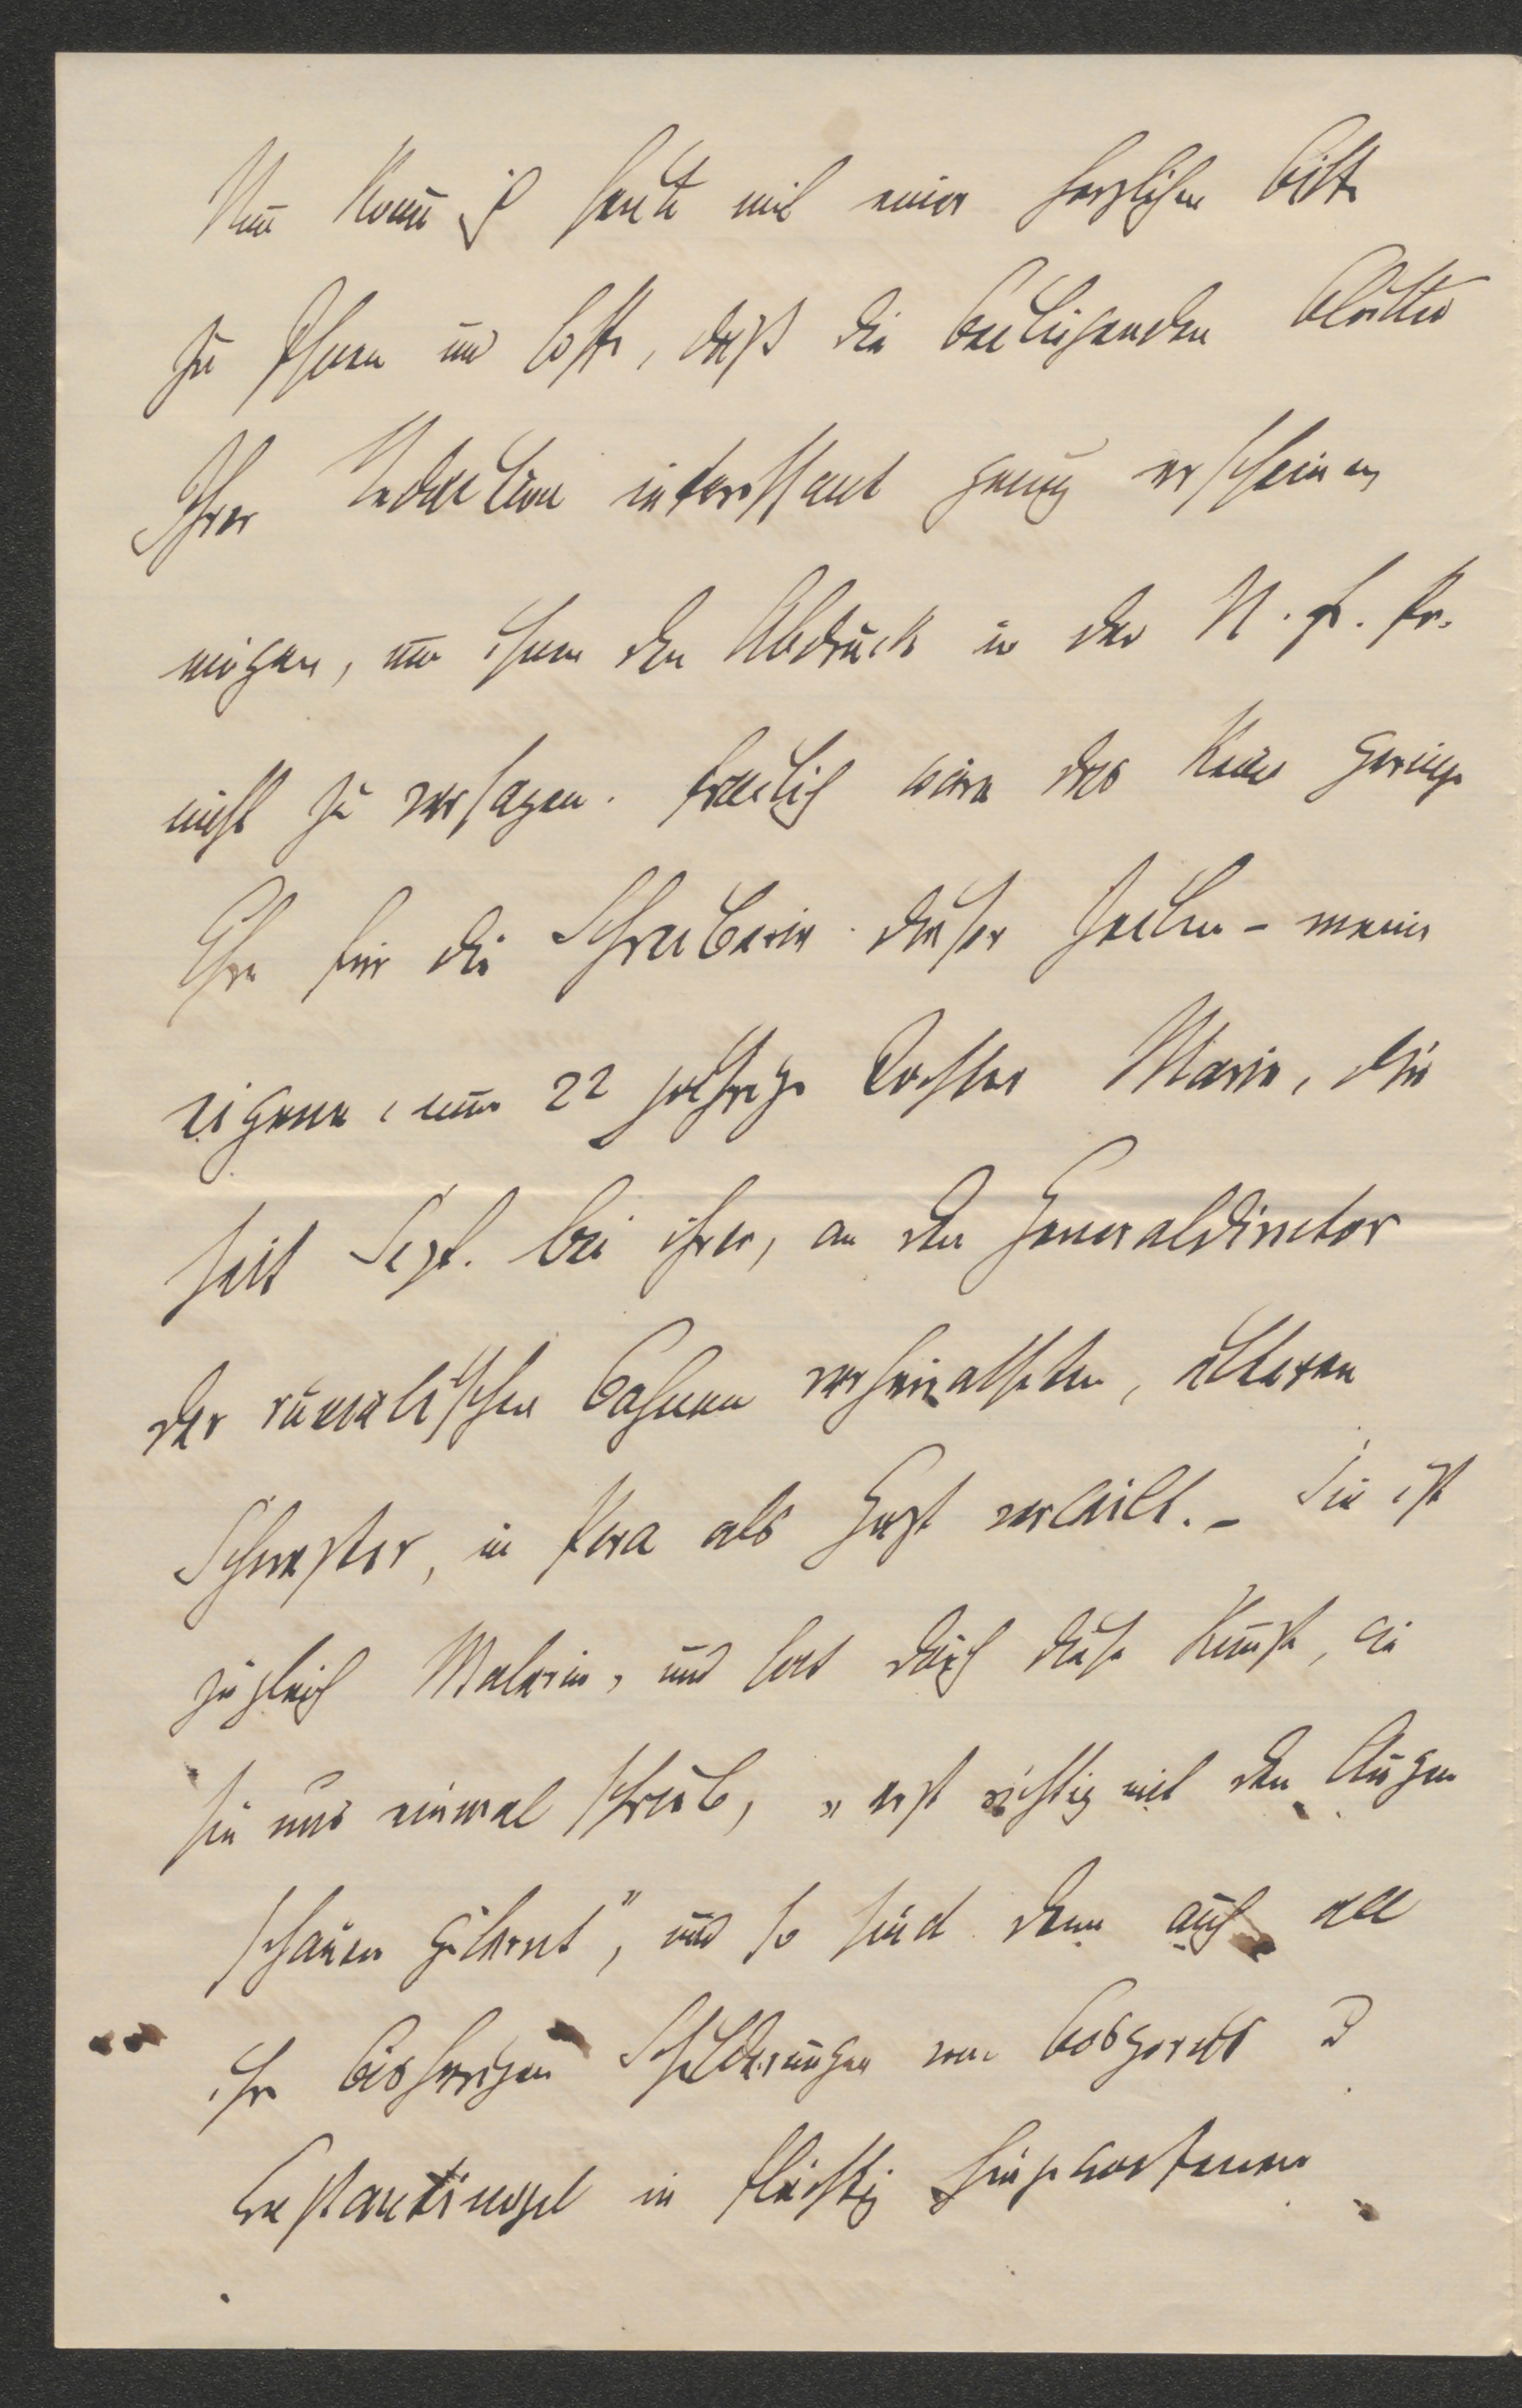 Nun komm ich heute mit einer herzlichen Bitte
zu Ihnen und hoffe, daß die beiliegenden Blätter
Ihrer Redaction interessant genug erscheinen
mögen, um ihnen den Abdruck in der N. f. Pr.
nicht zu versagen. Freilich wäre das keine geringe
Ehre für die Schreiberin dieser Zeilen – meine
eigene, nun 22 jährige Tochter Marie, die
seit Sept. bei ihrer, an den Generaldirector
der rumelischen Bahnen verheiratheten, älteren
Schwester, in Pera als Gast verweilt. – Sie ist
zugleich Malerin, und hat durch diese Kunst, wie
sie uns einmal schrieb, „erst richtig mit den Augen
schauen gelernt", und so sind denn auch alle
ihre bisherigen Schilderungen vom Bosporus &
Constantinopel in flüchtig hingeworfenen